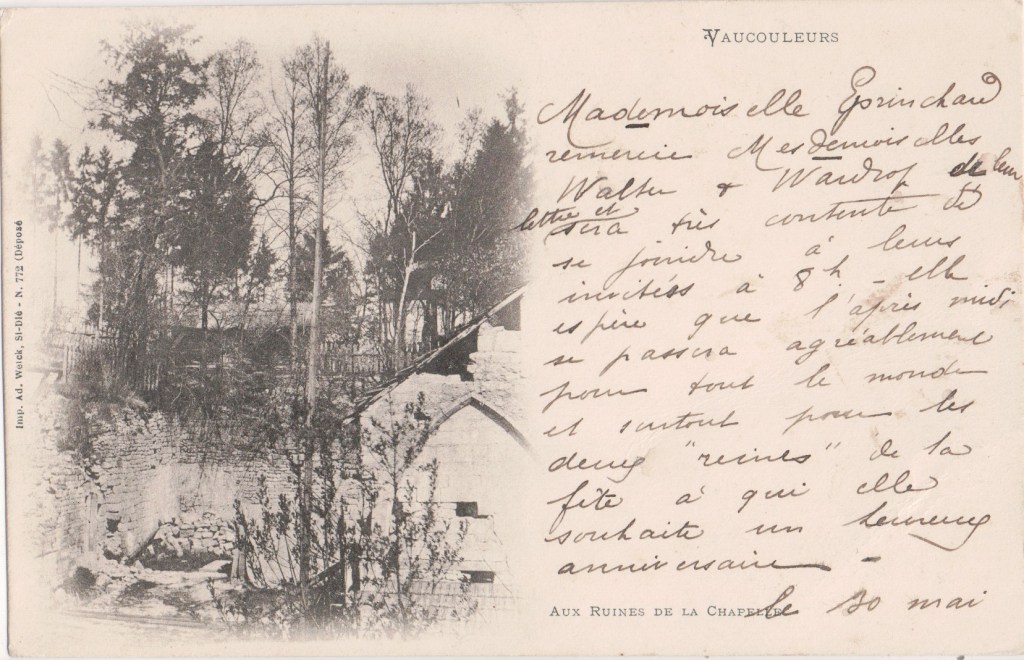 VAUCOULEURS
Mademoiselle
remercie Mesdemoiselles
Walter & Wardrop de leur
lettre et
sera très contente de
se joindre à leurs
invitées à 8h - elle
espère que l'après midi
se passera agréablement
pour tout le monde
et surtout pour les
deux "reines" de la
fête à qui elle
souhaite un heureux
anniversaire -
le 30 mai
AUX RUINES DE LA CHAPELLE
Imp. Ad. Weick, St-Dié - N. 772 (Déposé